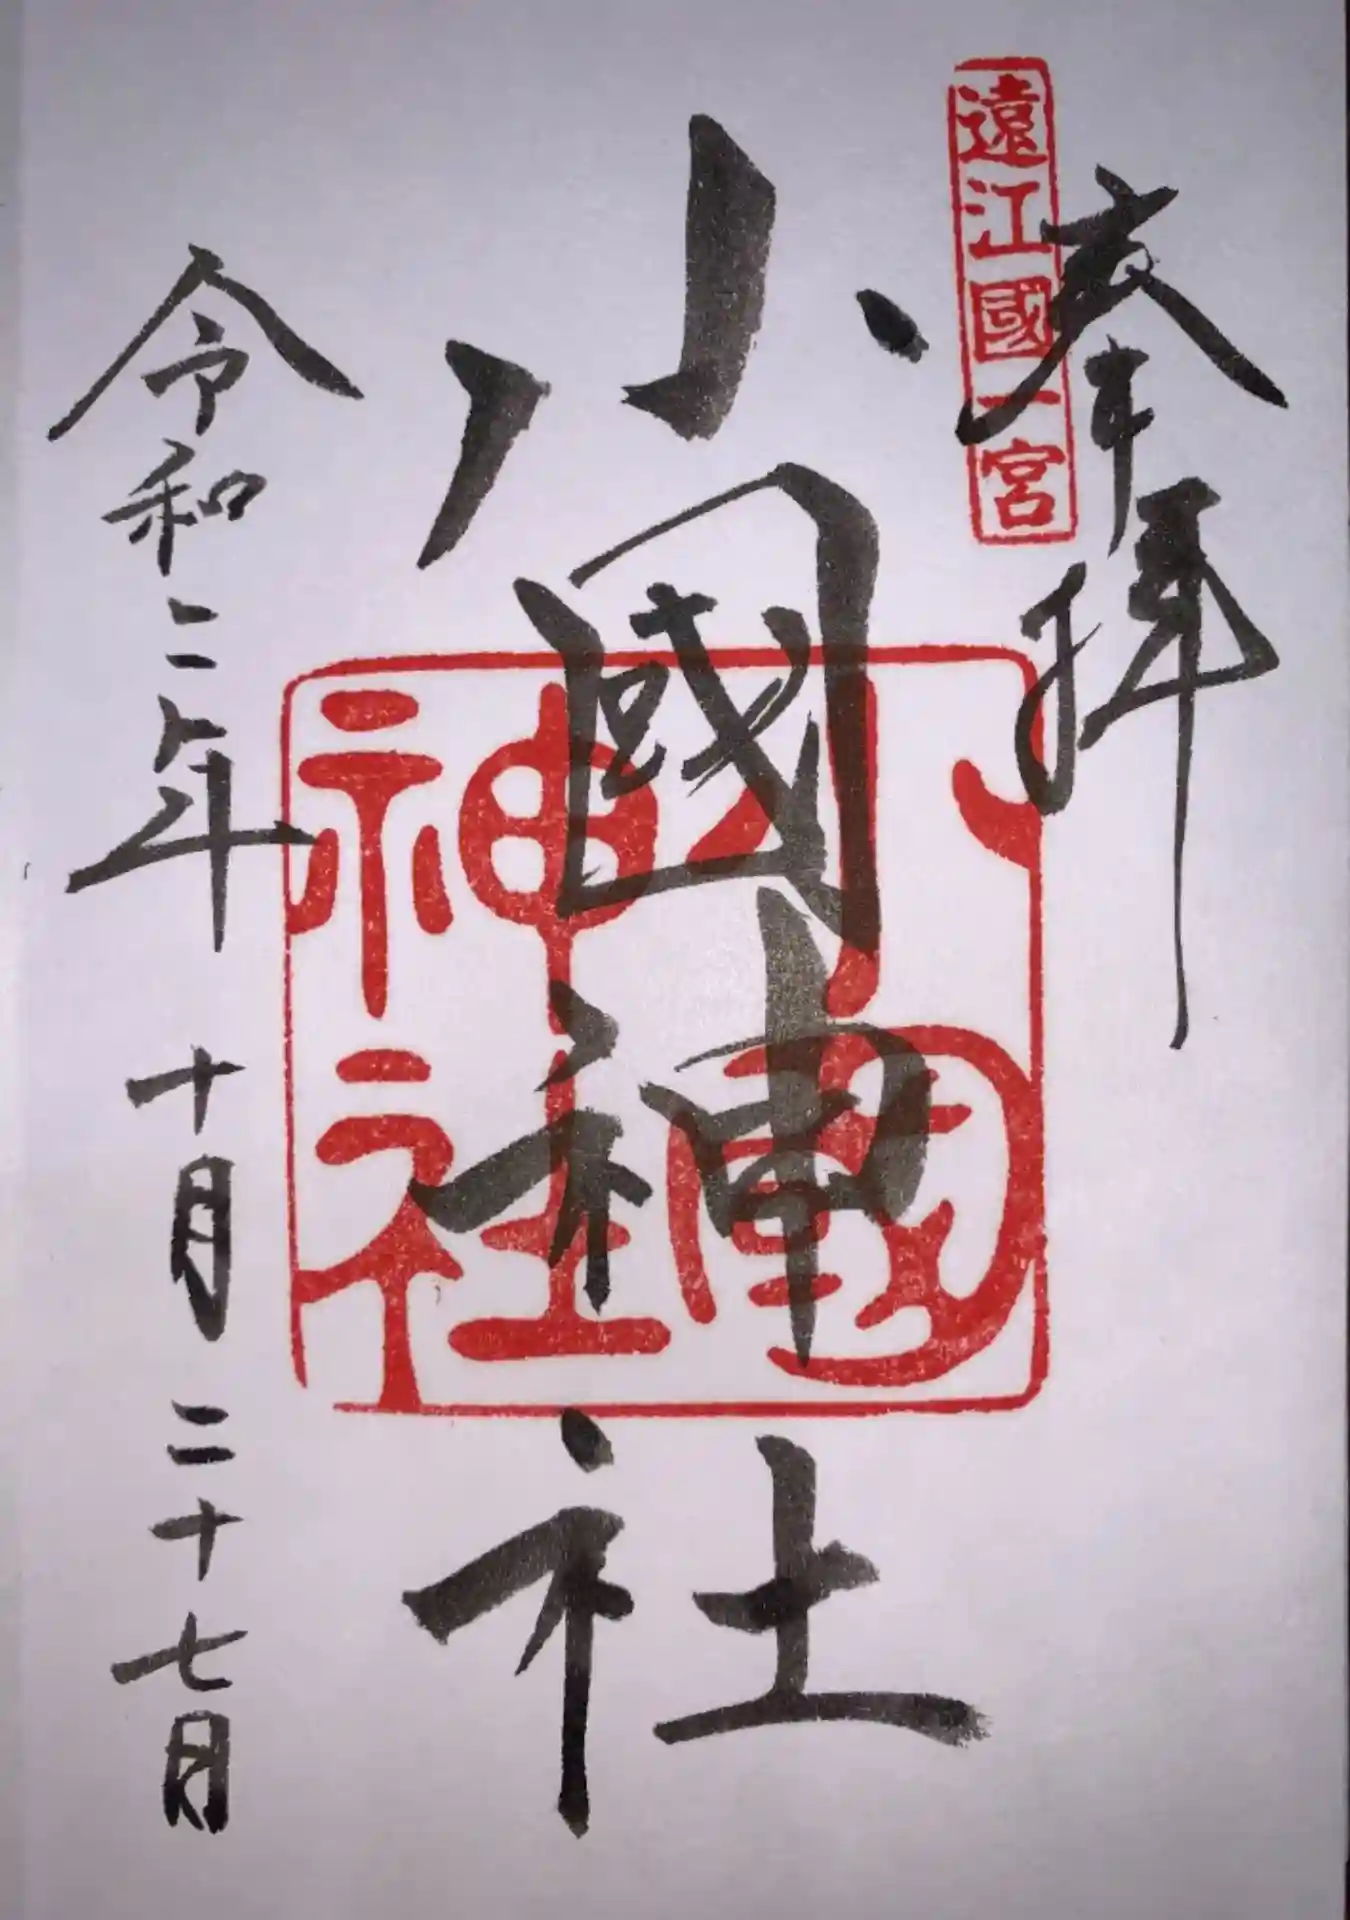 奉拝
遠江國一宮
小國神社
小國
神社
令和二年 十月 二十七日